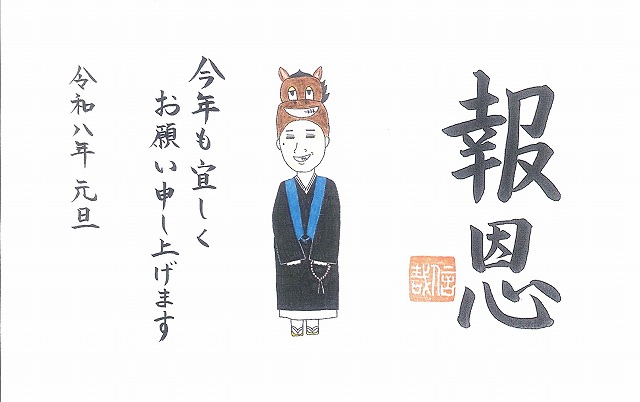 報恩
信哉
今年も宜しく
お願い申し上げます
令和八年 元旦